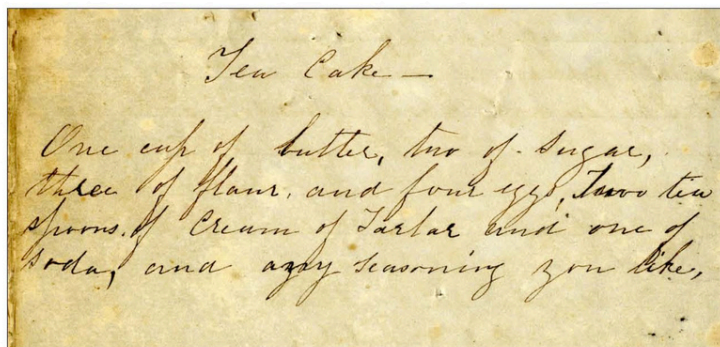 Tea Cake —
One cup of butter, two of sugar,
three of flour, and four eggs, Two tea
spoons of Cream of Tartar and one of
soda, and any seasoning you like,